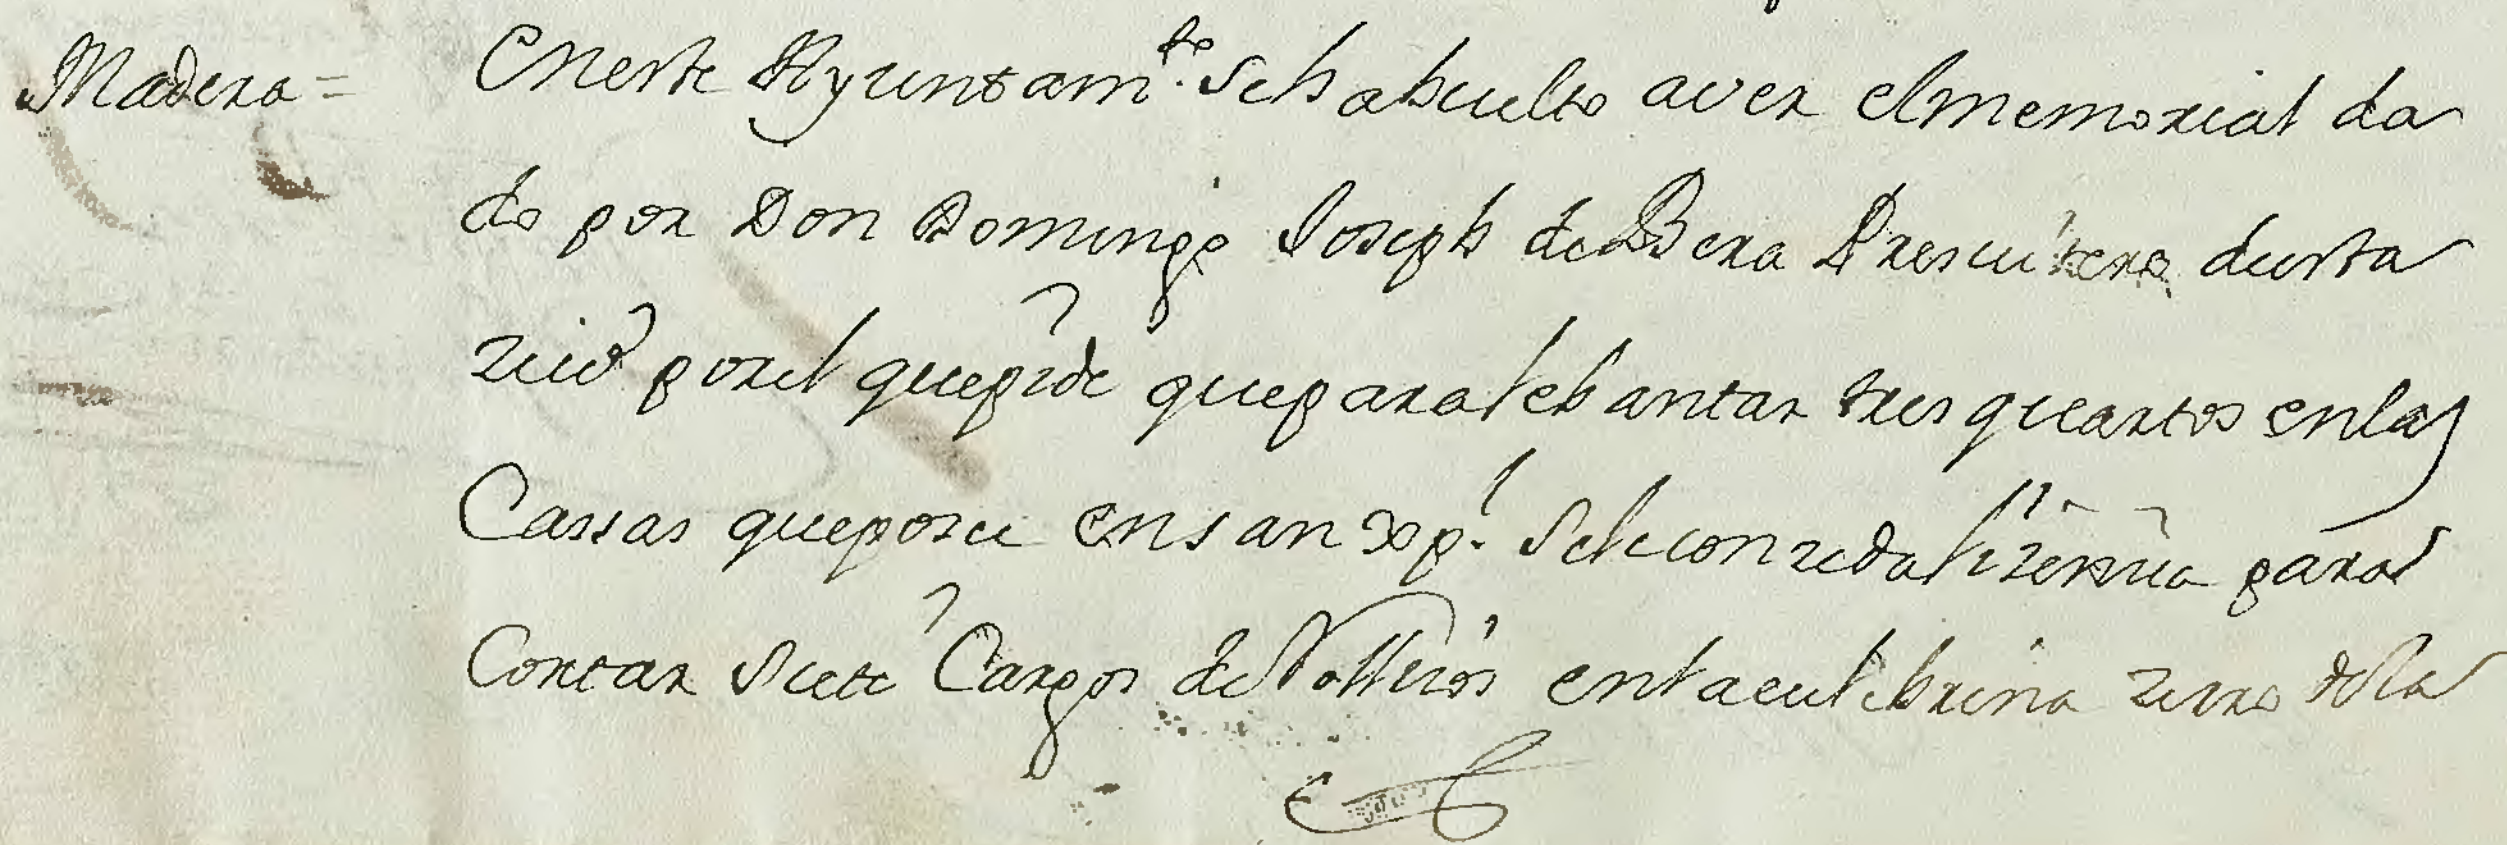 Madera = En este Ayuntam.to se ha buelto a ver el memorial da
do por Don Domingo Joseph de Bera Presuitero de esta
ziud por el que pide que para lebantar tres quartos en las
Cassas que posee en san Xpl. se le conzeda lizensia para
Cortar siete Cargos de Rollizos en la culebrina zerro de la